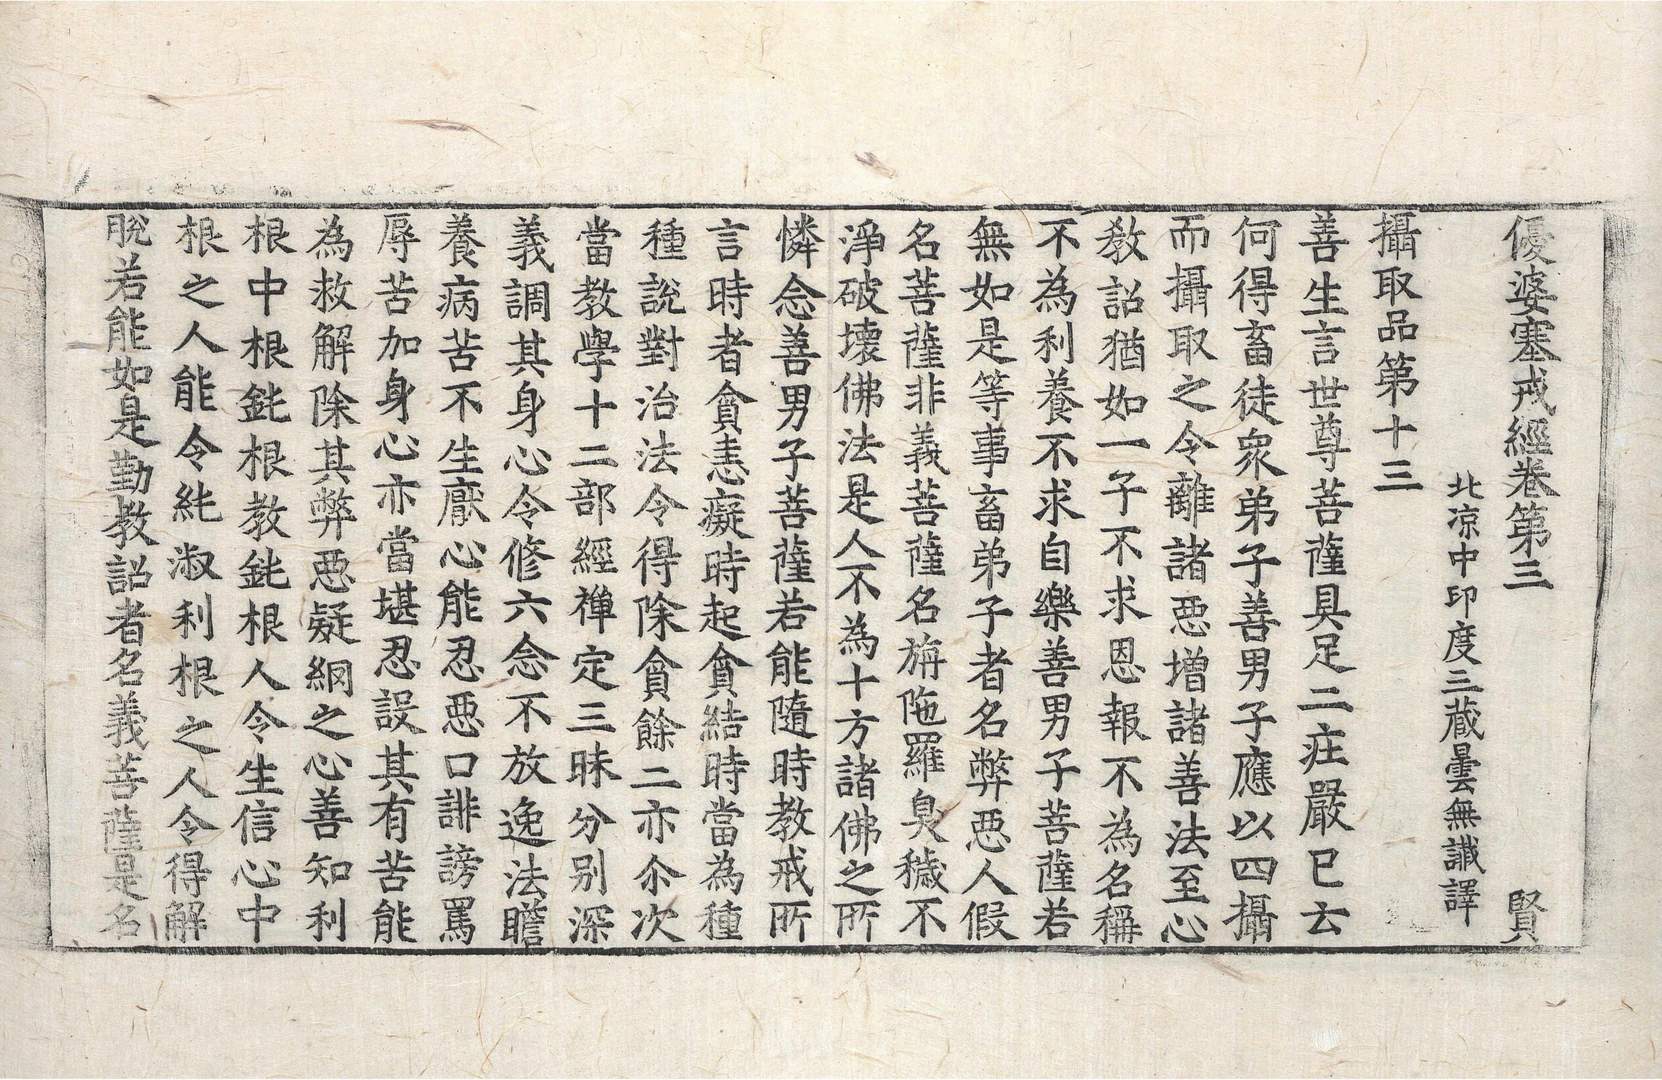 優婆塞戒經卷第三 賢
北凉中印度三藏曇無讖譯
攝取品第十三
善生言世尊菩薩具足二庄嚴已云
何得畜徒衆弟子善男子應以四攝
而攝取之令離諸惡增諸善法至心
教詔猶如一子不求恩報不為名稱
不為利養不求自樂善男子菩薩若
無如是等事畜弟子者名弊惡人假
名菩薩非義菩薩名旃陁羅臭穢不
淨破壞佛法是人不為十方諸佛之所
憐念善男子菩薩若能隨時教戒所
言時者貪恚癡時起貪結時當為種
種說對治法令得除貪餘二亦尒次
當教學十二部經禪定三昧分別深
義調其身心令修六念不放逸法瞻
養病苦不生厭心能忍惡口誹謗罵
辱苦加身心亦當堪忍設其有苦能
為救解除其弊惡疑綱之心善知利
根中根鈍根教鈍根人令生信心中
根之人能令純淑利根之人令得解
脫若能如是勤教詔者名義菩薩是名